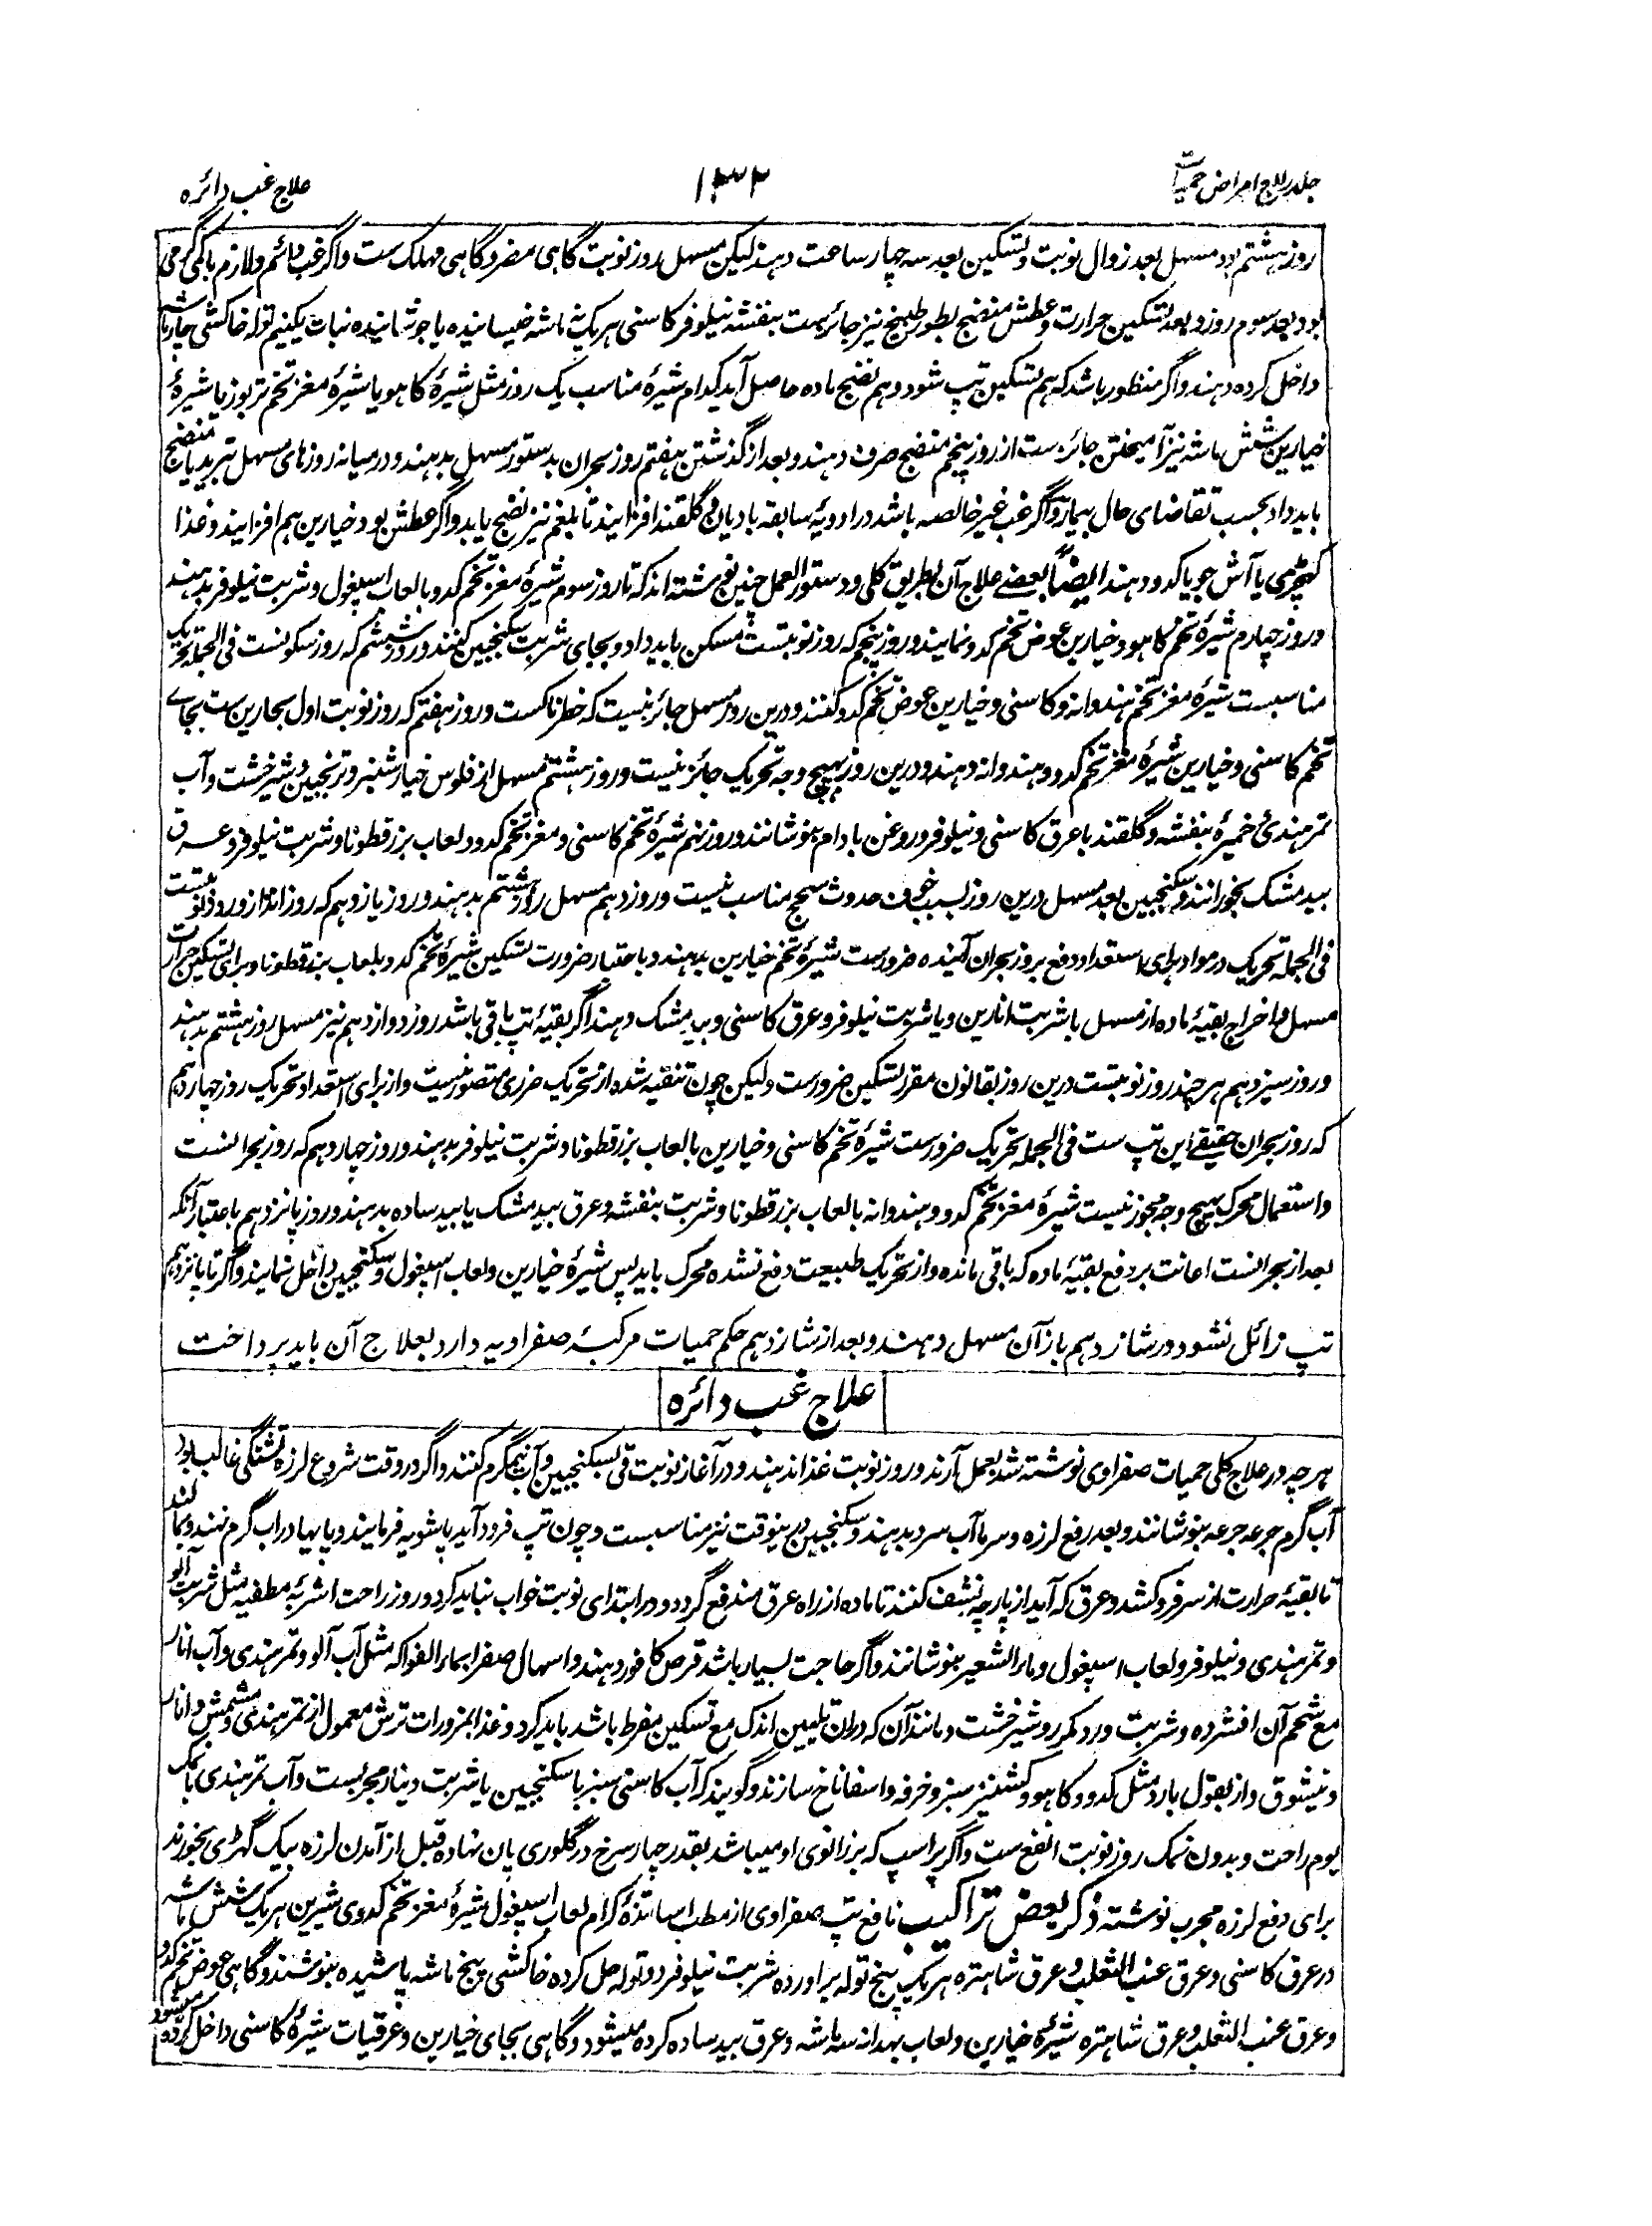 جلد رابع امراض حمیات
۱۳۲
علاج غب دائره
روز هشتم بود مسهل بعد زوال نوبت و تسکین بعد سه چهار ساعت دهند لیکن مسهل روز نوبت گاهی مضر و گاهی مهلک ست و اگر غب دائم و لازم باکمی گرمی
بود بعد سوم روز و بعد تسکین حرارت و عطش منضج بطور طبیخ نیز جائزست بنفشه نیلوفر کاسنی هریک ماشه خیسانیده یا جوشانیده نبات یکنیم توله خاکشی چار ماشه
داخل کرده دهند و اگر منظور باشد که هم تسکین تپ شود و هم نضج ماده حاصل آید کدام شیرۀ مناسب یک روز مثل شیرۀ کاهو یا شیرۀ مغز تخم تربوز یا شیرۀ
خیارین شش ماشه نیز آمیختن جائز ست از روز پنجم منضج صرف دهند و بعد از گذشتن هفتم روز بحران بدستور مسهل بدهند و درمیانه روزهای مسهل تبرید یا منضج
باید داد بحسب تقاضای حال بیمار و اگر غب غیر خالصه باشد در ادویۀ سابقه بادیان و گلقند افزایند تا بلغم نیز نضج یابد و اگر عطش بود خیارین هم افزایند و غذا
کهچڑی یا آش جو یا کدو دهند ایضاً بعضے علاج آن بطریق کلی و دستور العمل چنین نوشته اند که تا روز سوم شیرۀ مغز تخم کدو بالعاب اسپغول و شربت نیلوفر بدهند
و روز چهارم شیرۀ تخم کاهو و خیارین عوض تخم کدو نمایند و روز پنجم که روز نوبتست مسکن باید داد و بجای شربت سکنجبین کنند و روز ششم که روز سکونست فی الجمله تحریک
مناسبست شیرۀ مغز تخم هندوانه و کاسنی و خیارین عوض تخم کدو کنند و درین روز مسهل جائز نیست که خطرناکست و روز هفتم که روز نوبت اول بحارین ست بجاے
تخم کاسنی و خیارین شیرۀ مغز تخم کدو و هندوانه دهند و درین روز بهیچ وجه تحریک جائز نیست و روز هشتم مسهل از فلوس خیارشنبر و ترنجبین و شیرخشت و آب
تمر هندی و خمیرۀ بنفشه و گلقند با عرق کاسنی و نیلوفر و روغن بادام بنوشانند و روز نهم شیرۀ تخم کاسنی و مغز تخم کدو و لعاب بزرقطونا و شربت نیلوفر و عرق
بیدمشک بخورانند و سکنجبین بعد مسهل درین روز بسبب خوف حدوث سحج مناسب نیست و روز دهم مسهل روز هشتم بدهند و روز یازدهم که روز انذار و روز نوبتست
فی الجمله تحریک در مواد برای استعداد دفع بروز بحران آینده ضرورست شیرۀ تخم خیارین بدهند و باعتبار ضرورت تسکین شیرۀ تخم کدو بلعاب بزرقطونا و برای تسکین حرارت
مسهل و اخراج بقیۀ ماده از مسهل با شربت انارین و یا شربت نیلوفر و عرق کاسنی و بیدمشک دهند اگر بقیۀ تپ باقی باشد روز دوازدهم نیز مسهل روز هشتم بدهند
و روز سیزدهم هر چند روز نوبتست درین روز بقانون مقرر تسکین ضرورست ولیکن چون تنقیه شده از تحریک ضرری متصور نیست و از برای استعداد تحریک روز چهاردهم
که روز بحران حقیقے این تپ ست فی الجمله تحریک ضرورست شیرۀ تخم کاسنی و خیارین بالعاب بزرقطونا و شربت نیلوفر بدهند و روز چهاردهم که روز بحرانست
و استعمال محرک بهیچ وجه مجوز نیست شیرۀ مغز تخم کدو و هندوانه بالعاب بزرقطونا و شربت بنفشه و عرق بیدمشک یا بید ساده بدهند و روز پانزدهم باعتبار آنکه
بعد از بحرانست اعانت بر دفع بقیۀ ماده که باقی مانده و از تحریک طبیعت دفع نشده محرک باید پس شیرۀ خیارین و لعاب اسپغول و سکنجبین داخل نمایند و اگر تا پانزدهم
تپ زائل نشود در شانزدهم باز آن مسهل دهند و بعد از شانزدهم حکم حمیات مرکبۀ صفراویه دارد بعلاج آن باید پرداخت
علاج غب دائره
هرچه در علاج کلی حمیات صفراوی نوشته شد بعمل آرند و روز نوبت غذا ندهند و در آغاز نوبت قی بسکنجبین و آب نیمگرم کنند و اگر در وقت شروع لرزه تشنگی غالب بود
آب گرم جرعه جرعه بنوشانند و بعد رفع لرزه و سرما آب سرد بدهند و سکنجبین درینوقت نیز مناسبست و چون تپ فرود آید پاشویه فرمایند و پایها در آب گرم نهند و بمالند
تا بقیۀ حرارت از سر فرو کشد و عرق که آید از پارچه نشف کنند تا ماده از راه عرق مندفع گردد و در ابتدای نوبت خواب نباید کرد و روز راحت اشربۀ مطفیه مثل شربت آلو
و تمر هندی و نیلوفر و لعاب اسپغول و ماء الشعیر بنوشانند و اگر حاجت بسیار باشد قرص کافور دهند و اسهال صفرا بماء الفواکه مثل آب آلو و تمر هندی و آب انار
مع شحم آن افشرده و شربت ورد مکرر و شیرخشت و مانند آن که دران تلیین اندک مع تسکین مفرط باشد باید کرد و غذا بمزورات ترش معمول از تمر هندی و مشمش و انار
و نیشوق و از بقول بارد مثل کدو و کاهو و کشنیز سبز و خرفه و اسفاناخ سازند و گویند که آب کاسنی سبز با سکنجبین یا شربت دینار مجربست و آب تمر هندی با نمک
یوم راحت و بدون نمک روز نوبت انفع ست و اگر پر اسپ که بر زانوی او میباشد بقدر چهار سرخ در گلوری پان نهاده قبل از آمدن لرزه بیک گهڑی بخورند
برای دفع لرزه مجرب نوشته ذکر بعض تراکیب نافع تپ صفراوی از مطب اساتذۀ کرام لعاب اسپغول شیرۀ مغز تخم کدوی شیرین هریک شش ماشه
در عرق کاسنی و عرق عنب الثعلب و عرق شاهتره هر یک پنج توله برآورده شربت نیلوفر دو توله حل کرده خاکشی پنج ماشه پاشیده بنوشند و گاهی عوض تخم کدو
و عرق عنب الثعلب و عرق شاهتره شیرۀ خیارین و لعاب بهدانه سه ماشه و عرق بید ساده کرده میشود و گاهی بجای خیارین و عرقیات شیرۀ کاسنی داخل کرده میشود